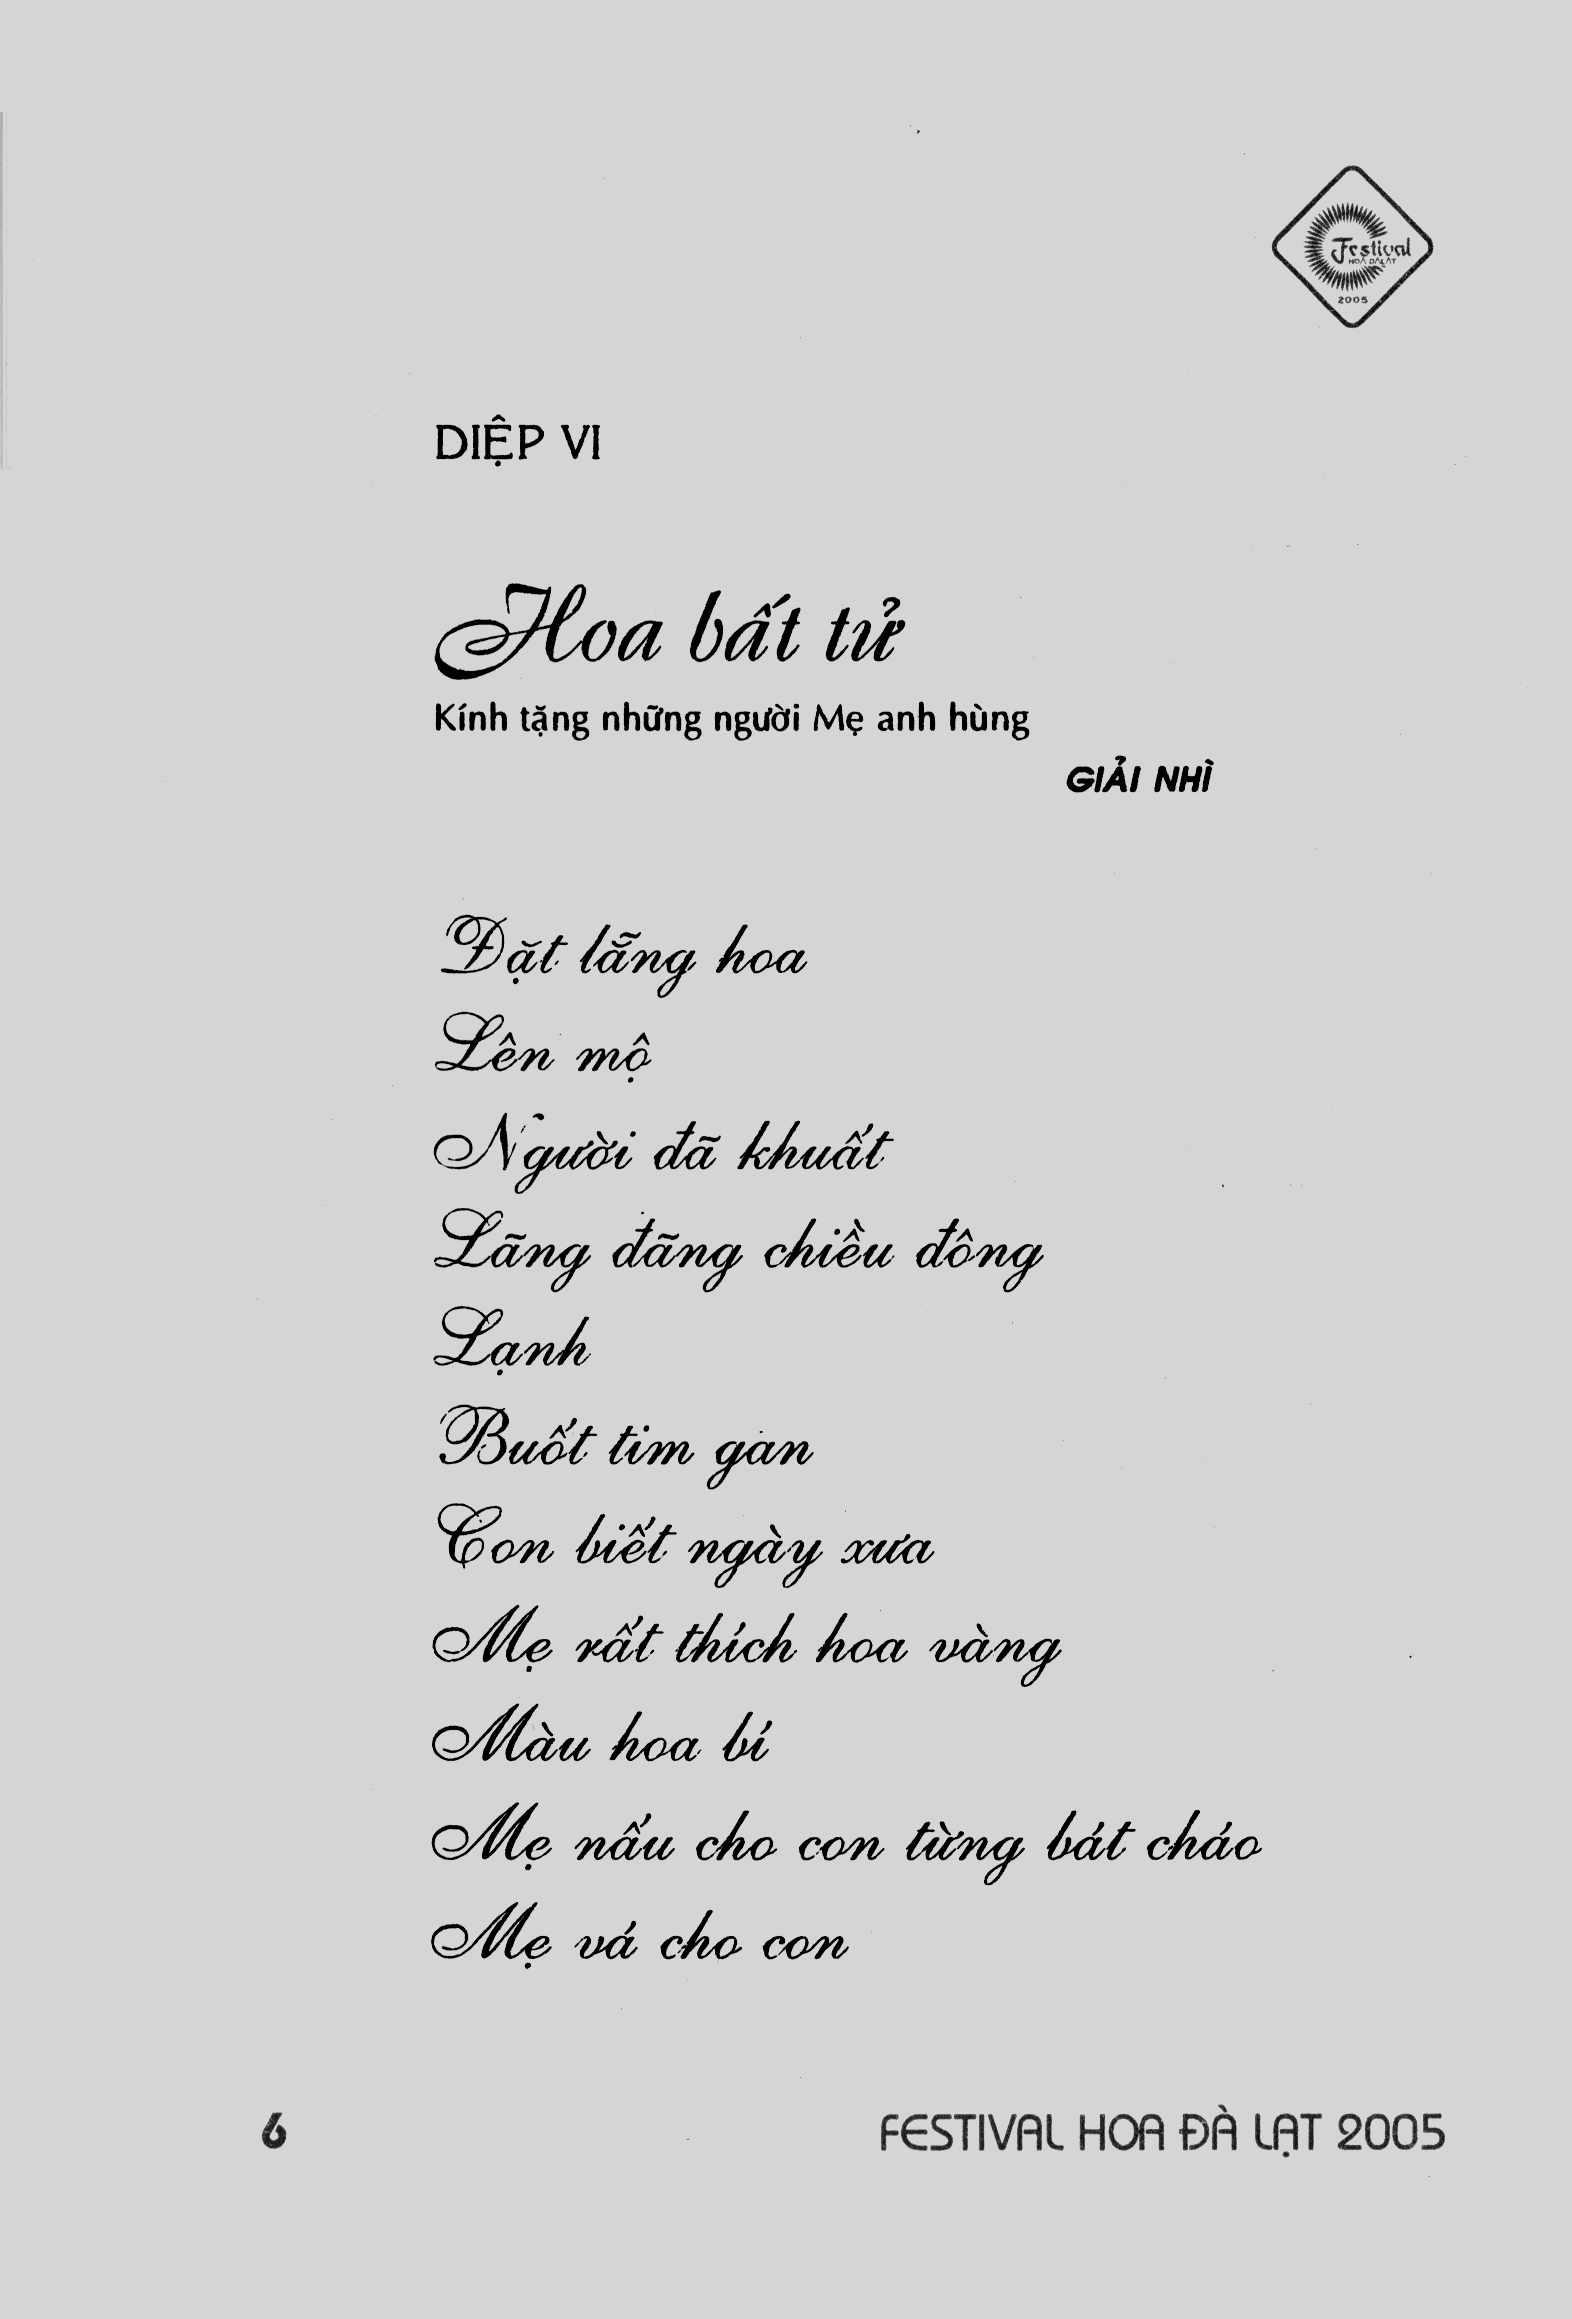 Festival
HOA ĐÀ LẠT
2005
DIỆP VI
Hoa bất tử
Kính tặng những người Mẹ anh hùng
GIẢI NHÌ
Đặt lẵng hoa
Lên mộ
Người đã khuất
Lãng đãng chiều đông
Lạnh
Buốt tim gan
Con biết ngày xưa
Mẹ rất thích hoa vàng
Màu hoa bí
Mẹ nấu cho con từng bát cháo
Mẹ vá cho con
6 FESTIVAL HOA ĐÀ LẠT 2005